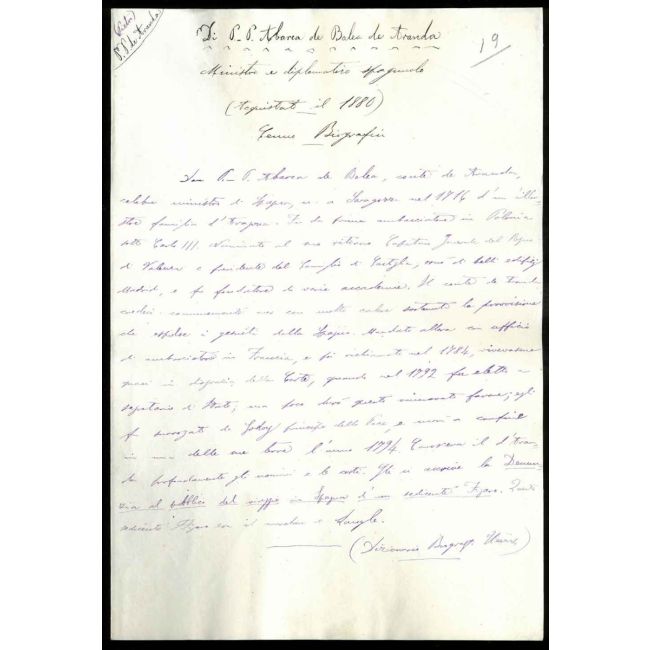 P. P. de Aranda
Di P. P. Abarca de Bolea de Aranda
19
Ministro e diplomatico spagnuolo
(Acquistato il 1880)
Cenni Biografici
Don P. P. Abarca de Bolea, conte de Aranda,
celebre ministro di Spagna, n. a Saragozza nel 1716 d'un'illu-
stre famiglia d'Aragona. Fu da prima ambasciatore in Polonia
sotto Carlo III. Nominato al suo ritorno Capitano Generale del Regno
di Valenza e presidente del Consiglio di Castiglia, ornò di belli edifizj
Madrid, e fu fondatore di varie accademie. Il conte de Aranda
credesi comunemente con molto calore sostenuto la provvisione
de espellere i gesuiti dalla Spagna. Mandato allora con ufficio
di ambasciatore in Francia, e fu richiamato nel 1784, vivevasene
quasi in disgrazia della Corte, quando nel 1792 fu eletto a
segretario di Stato, ma poco durò questo rinnovato favore; egli
fu surrogato da Godoy principe della Pace, e morì a confine
in una delle sue terre l'anno 1794. Conosceva il d'Aran-
da profondamente gli uomini e le corti. Gli si ascrive la Denun-
zia al pubblico del viaggio in Spagna d'un sedicente Figaro. Questo
sedicente Figaro era il marchese di Langle.
(Dizionario Biograf. Univ.)